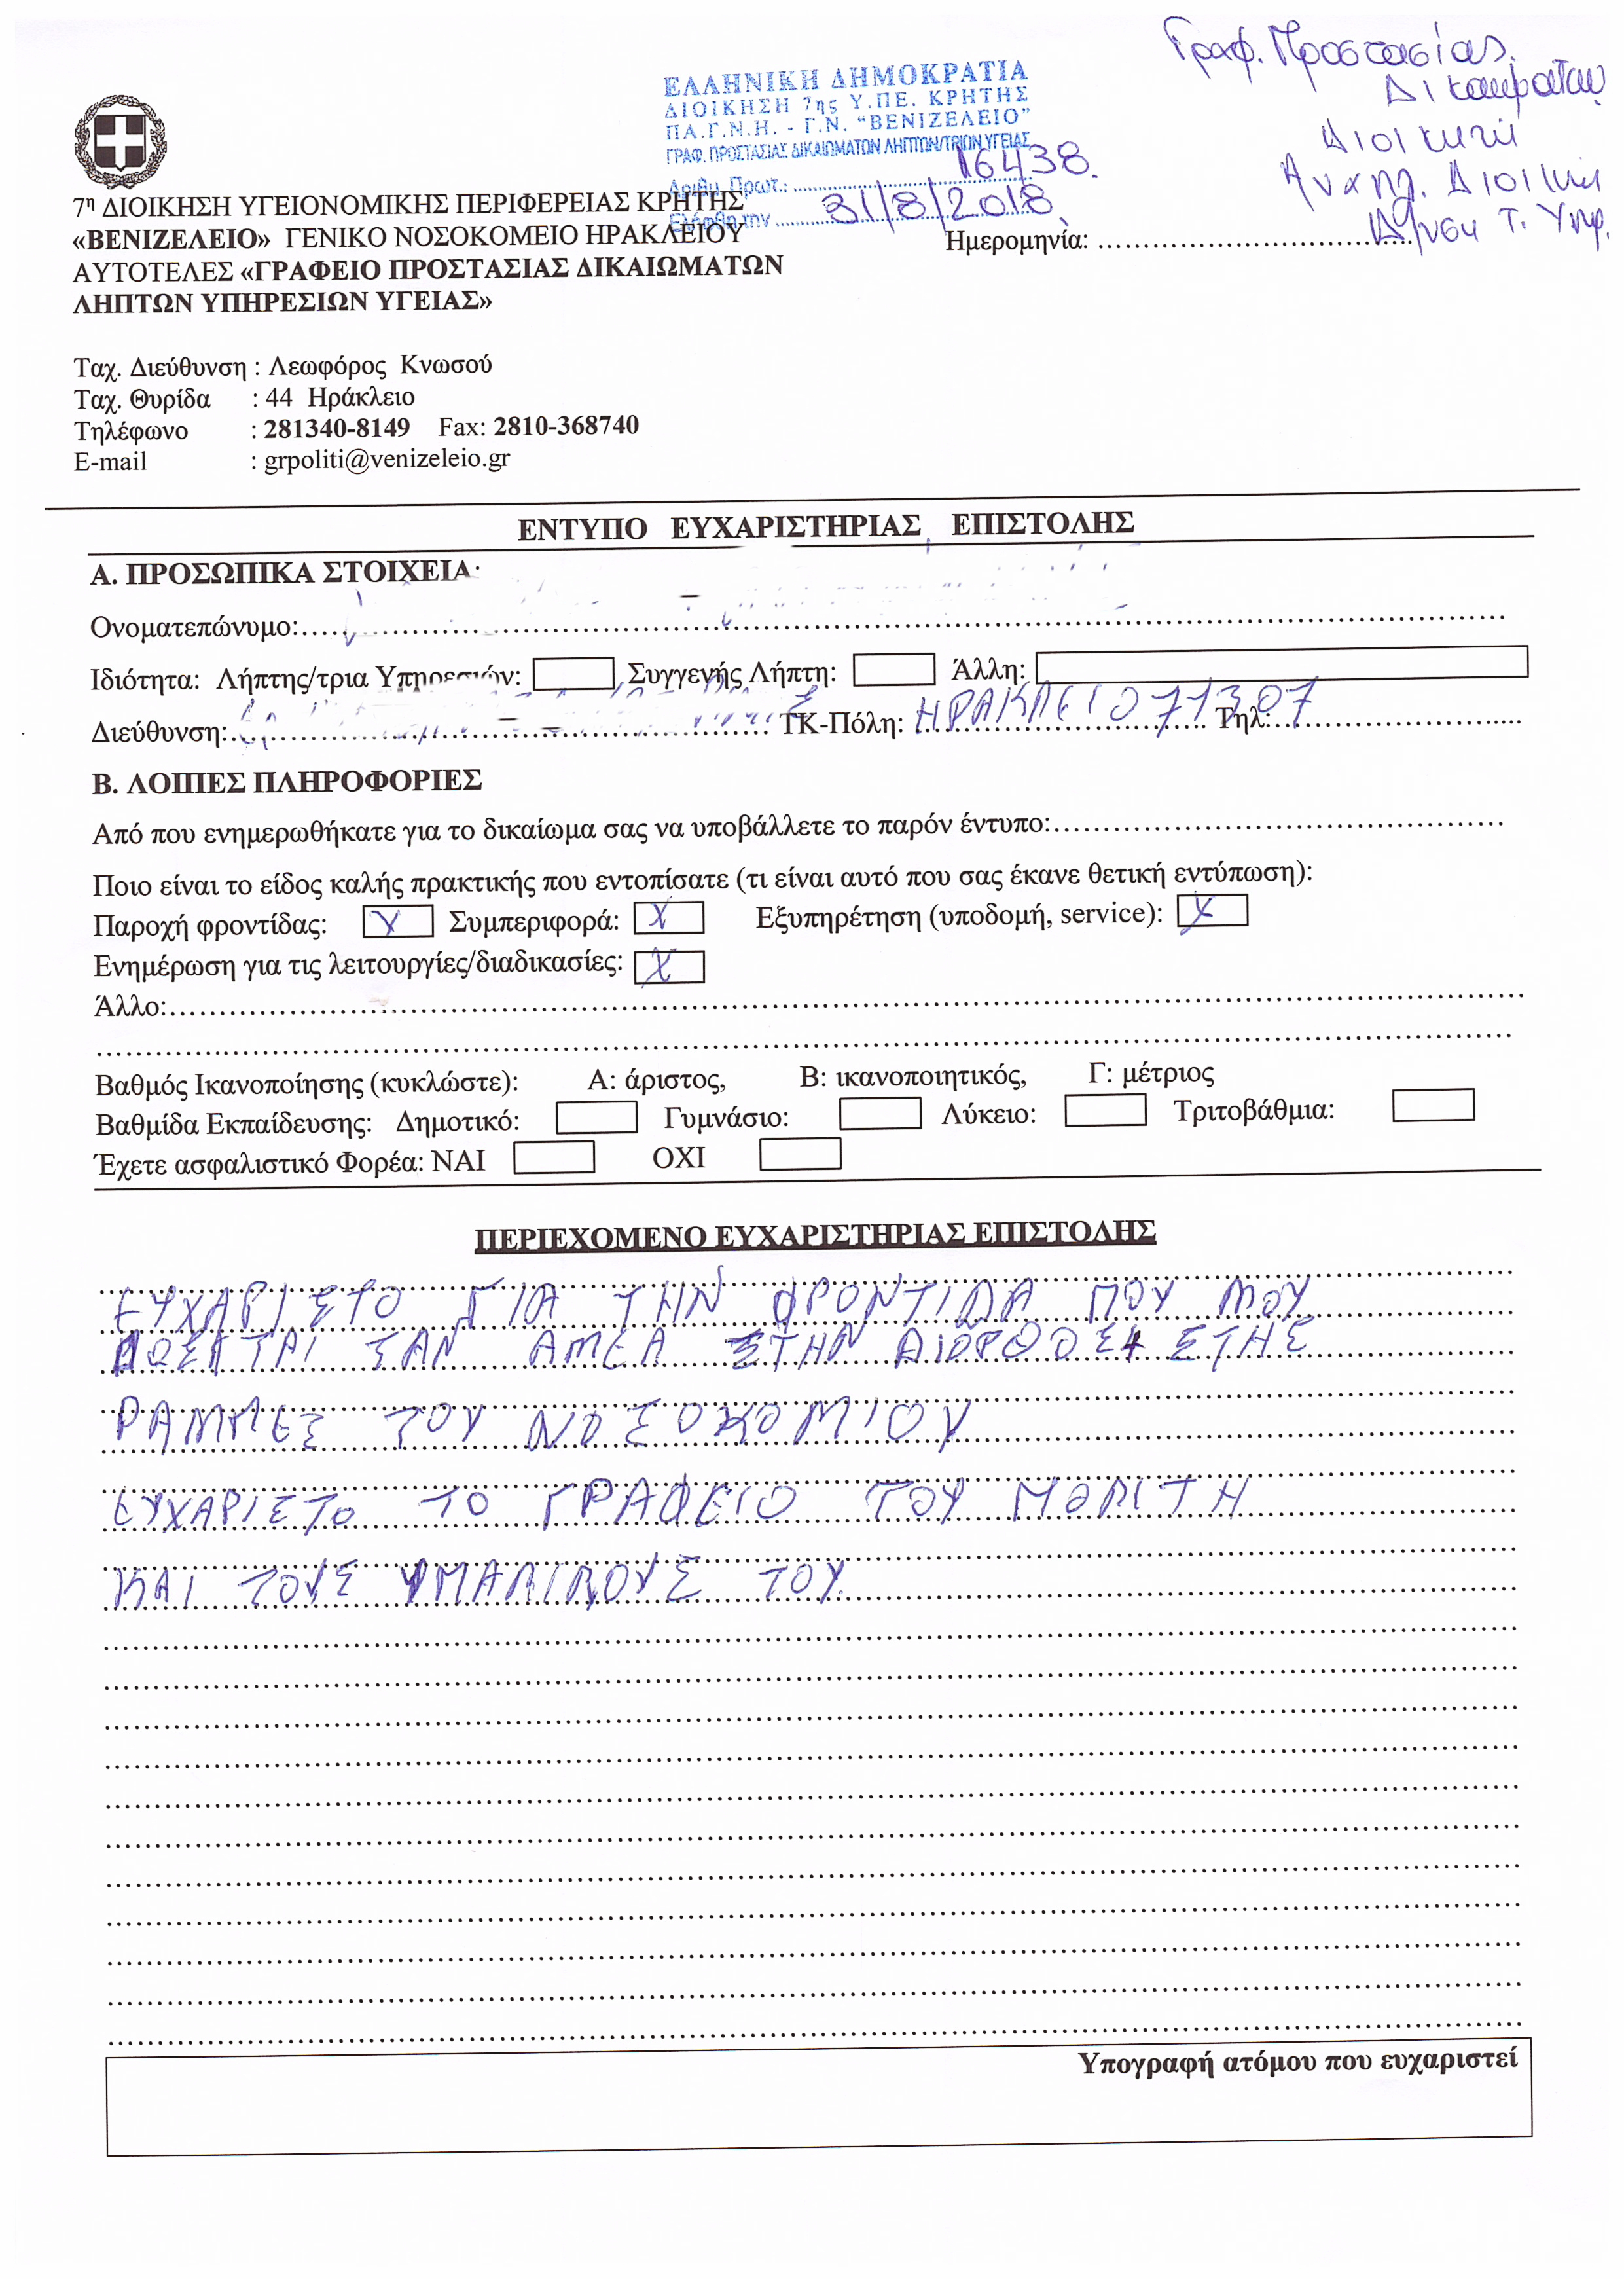 Γραφ. Προστασίας
Δικαιωμάτων
Διοικητή
Αναπλ. Διοικητή
Δ/νση Τ. Υπηρ.
ΕΛΛΗΝΙΚΗ ΔΗΜΟΚΡΑΤΙΑ
ΔΙΟΙΚΗΣΗ 7ης Υ.ΠΕ. ΚΡΗΤΗΣ
ΠΑ.Γ.Ν.Η. - Γ.Ν. "ΒΕΝΙΖΕΛΕΙΟ"
ΓΡΑΦ. ΠΡΟΣΤΑΣΙΑΣ ΔΙΚΑΙΩΜΑΤΩΝ ΛΗΠΤΩΝ/ΤΡΙΩΝ ΥΓΕΙΑΣ
Αριθμ. Πρωτ.: 16438.
Ελήφθη την 31/8/2018
7η ΔΙΟΙΚΗΣΗ ΥΓΕΙΟΝΟΜΙΚΗΣ ΠΕΡΙΦΕΡΕΙΑΣ ΚΡΗΤΗΣ
«ΒΕΝΙΖΕΛΕΙΟ» ΓΕΝΙΚΟ ΝΟΣΟΚΟΜΕΙΟ ΗΡΑΚΛΕΙΟΥ
Ημερομηνία: ..................................
ΑΥΤΟΤΕΛΕΣ «ΓΡΑΦΕΙΟ ΠΡΟΣΤΑΣΙΑΣ ΔΙΚΑΙΩΜΑΤΩΝ
ΛΗΠΤΩΝ ΥΠΗΡΕΣΙΩΝ ΥΓΕΙΑΣ»
Ταχ. Διεύθυνση : Λεωφόρος Κνωσού
Ταχ. Θυρίδα : 44 Ηράκλειο
Τηλέφωνο : 281340-8149 Fax: 2810-368740
E-mail : grpoliti@venizeleio.gr
ΕΝΤΥΠΟ ΕΥΧΑΡΙΣΤΗΡΙΑΣ ΕΠΙΣΤΟΛΗΣ
Α. ΠΡΟΣΩΠΙΚΑ ΣΤΟΙΧΕΙΑ:
Ονοματεπώνυμο:
Ιδιότητα: Λήπτης/τρια Υπηρεσιών: Συγγενής Λήπτη: Άλλη:
Διεύθυνση: ΤΚ-Πόλη: ΗΡΑΚΛΕΙΟ 71307 Τηλ:
Β. ΛΟΙΠΕΣ ΠΛΗΡΟΦΟΡΙΕΣ
Από που ενημερωθήκατε για το δικαίωμα σας να υποβάλλετε το παρόν έντυπο:
Ποιο είναι το είδος καλής πρακτικής που εντοπίσατε (τι είναι αυτό που σας έκανε θετική εντύπωση):
Παροχή φροντίδας: X Συμπεριφορά: X Εξυπηρέτηση (υποδομή, service): X
Ενημέρωση για τις λειτουργίες/διαδικασίες: X
Άλλο:
Βαθμός Ικανοποίησης (κυκλώστε): Α: άριστος, Β: ικανοποιητικός, Γ: μέτριος
Βαθμίδα Εκπαίδευσης: Δημοτικό: Γυμνάσιο: Λύκειο: Τριτοβάθμια:
Έχετε ασφαλιστικό Φορέα: ΝΑΙ ΟΧΙ
ΠΕΡΙΕΧΟΜΕΝΟ ΕΥΧΑΡΙΣΤΗΡΙΑΣ ΕΠΙΣΤΟΛΗΣ
ΕΥΧΑΡΙΣΤΟ ΓΙΑ ΤΗΝ ΦΡΟΝΤΙΔΑ ΠΟΥ ΜΟΥ
ΔΟΣΑΤΑΙ ΣΑΝ ΑΜΕΑ ΣΤΗΝ ΔΙΟΡΘΟΣΗ ΣΤΗΣ
ΡΑΜΠΕΣ ΤΟΥ ΝΟΣΟΚΟΜΙΟΥ
ΕΥΧΑΡΙΣΤΟ ΤΟ ΓΡΑΦΕΙΟ ΤΟΥ ΜΟΛΙΤΗ
ΚΑΙ ΤΟΥΣ ΥΠΑΛΙΛΟΥΣ ΤΟΥ
Υπογραφή ατόμου που ευχαριστεί